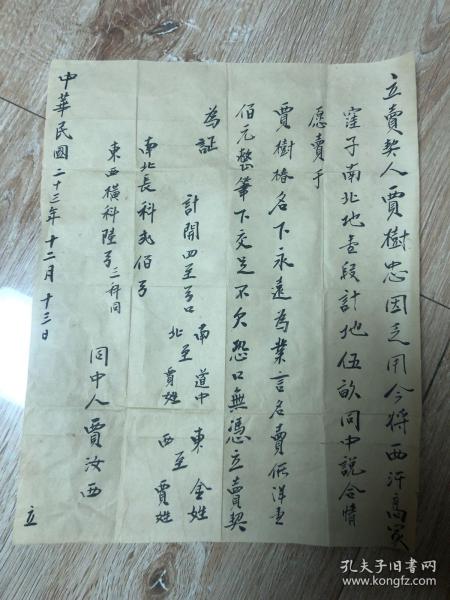 立賣契人賈樹忠因乏用今將西汗高家
窪子南北地壹段計地伍畝同中說合情
愿賣于
賈樹椿名下永遠為業言名賣價洋壹
佰元整筆下交足不欠恐口無憑立賣契
為証
計開四至弓口 南道中 北至賈姓 東金姓 西至賈姓
南北長科弍佰弓
東西橫科陸弓 三科同
同中人賈汝西
中華民國二十三年十二月十三日 立
孔夫子旧书网
www.kongfz.com